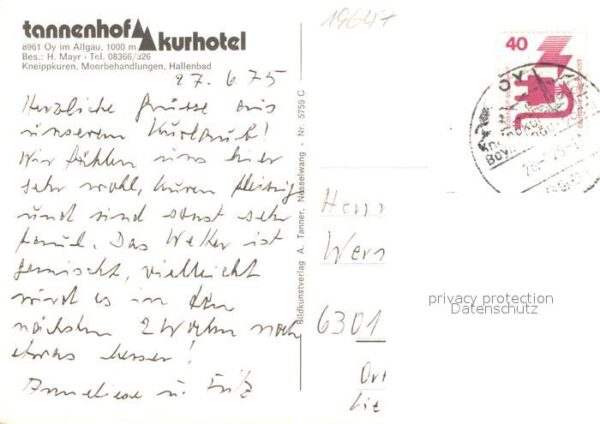 tannenhof kurhotel
8961 Oy im Allgäu, 1000 m
Bes.: H. Mayr - Tel. 08366/326
Kneippkuren, Moorbehandlungen, Hallenbad
27. 6. 75
Herzliche Grüsse aus
unserem Kurlaub!
Wir fühlen uns hier
sehr wohl, kuren fleissig
und sind sonst sehr
faul. Das Wetter ist
gemischt, vielleicht
wird es in den
nächsten 2 Wochen noch
etwas besser!
Anneliese u. Fritz
Bildkunstverlag A. Tanner, Nesselwang - Nr. 5759 C
40
OY
Herrn
Wern
6301
privacy protection
Datenschutz